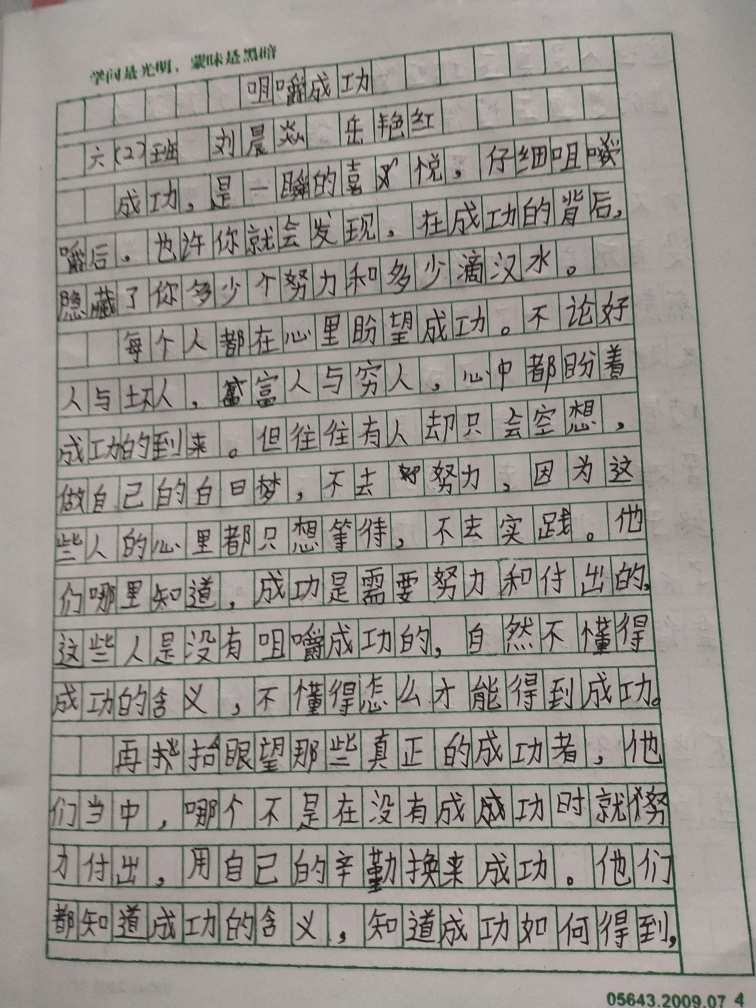 学问是光明，蒙昧是黑暗
咀嚼成功
六(2)班 刘晨焱 岳艳红
成功，是一瞬的喜悦，仔细咀嚼
嚼后。也许你就会发现，在成功的背后，
隐藏了你多少个努力和多少滴汉水。
每个人都在心里盼望成功。不论好
人与坏人，富人与穷人，心中都盼着
成功的到来。但往往有人却只会空想，
做自己的白日梦，不去努力，因为这
些人的心里都只想等待，不去实践。他
们哪里知道，成功是需要努力和付出的，
这些人是没有咀嚼成功的，自然不懂得
成功的含义，不懂得怎么才能得到成功。
再抬眼望那些真正的成功者，他
们当中，哪个不是在没有成成功时就努
力付出，用自己的辛勤换来成功。他们
都知道成功的含义，知道成功如何得到，
05643.2009.07